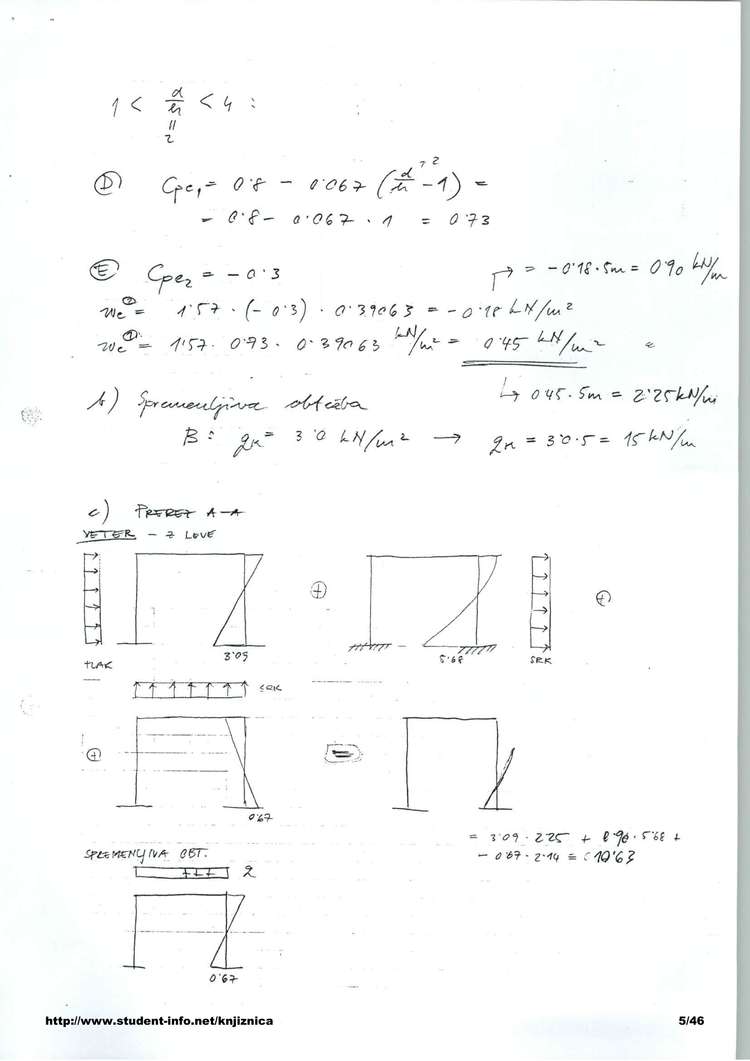 1 < d/h < 4 :
=
2
Ⓓ Cpe1 = 0.8 - 0.067 (d/h - 1) =
2
= 0.8 - 0.067 · 1 = 0.73
Ⓔ Cpe2 = -0.3
→ = -0.18 · 5m = 0.90 kN/m
we② = 1.57 · (-0.3) · 0.39063 = -0.18 kN/m²
we① = 1.57 · 0.73 · 0.39063 kN/m² = 0.45 kN/m²
↳ 0.45 · 5m = 2.25 kN/m
b) Spremenljiva obtežba
B: qk = 3.0 kN/m² → qk = 3.0 · 5 = 15 kN/m
c) PREREZ A-A
VETER - Z LEVE
⊕ ⊕
3.09 5.68
TLAK SRK
SRK
⊕ =
0.67
= 3.09 · 2.25 + 0.90 · 5.68 +
- 0.67 · 2.14 = 10.63
SPREMENLJIVA OBT.
q
0.67
http://www.student-info.net/knjiznica 5/46